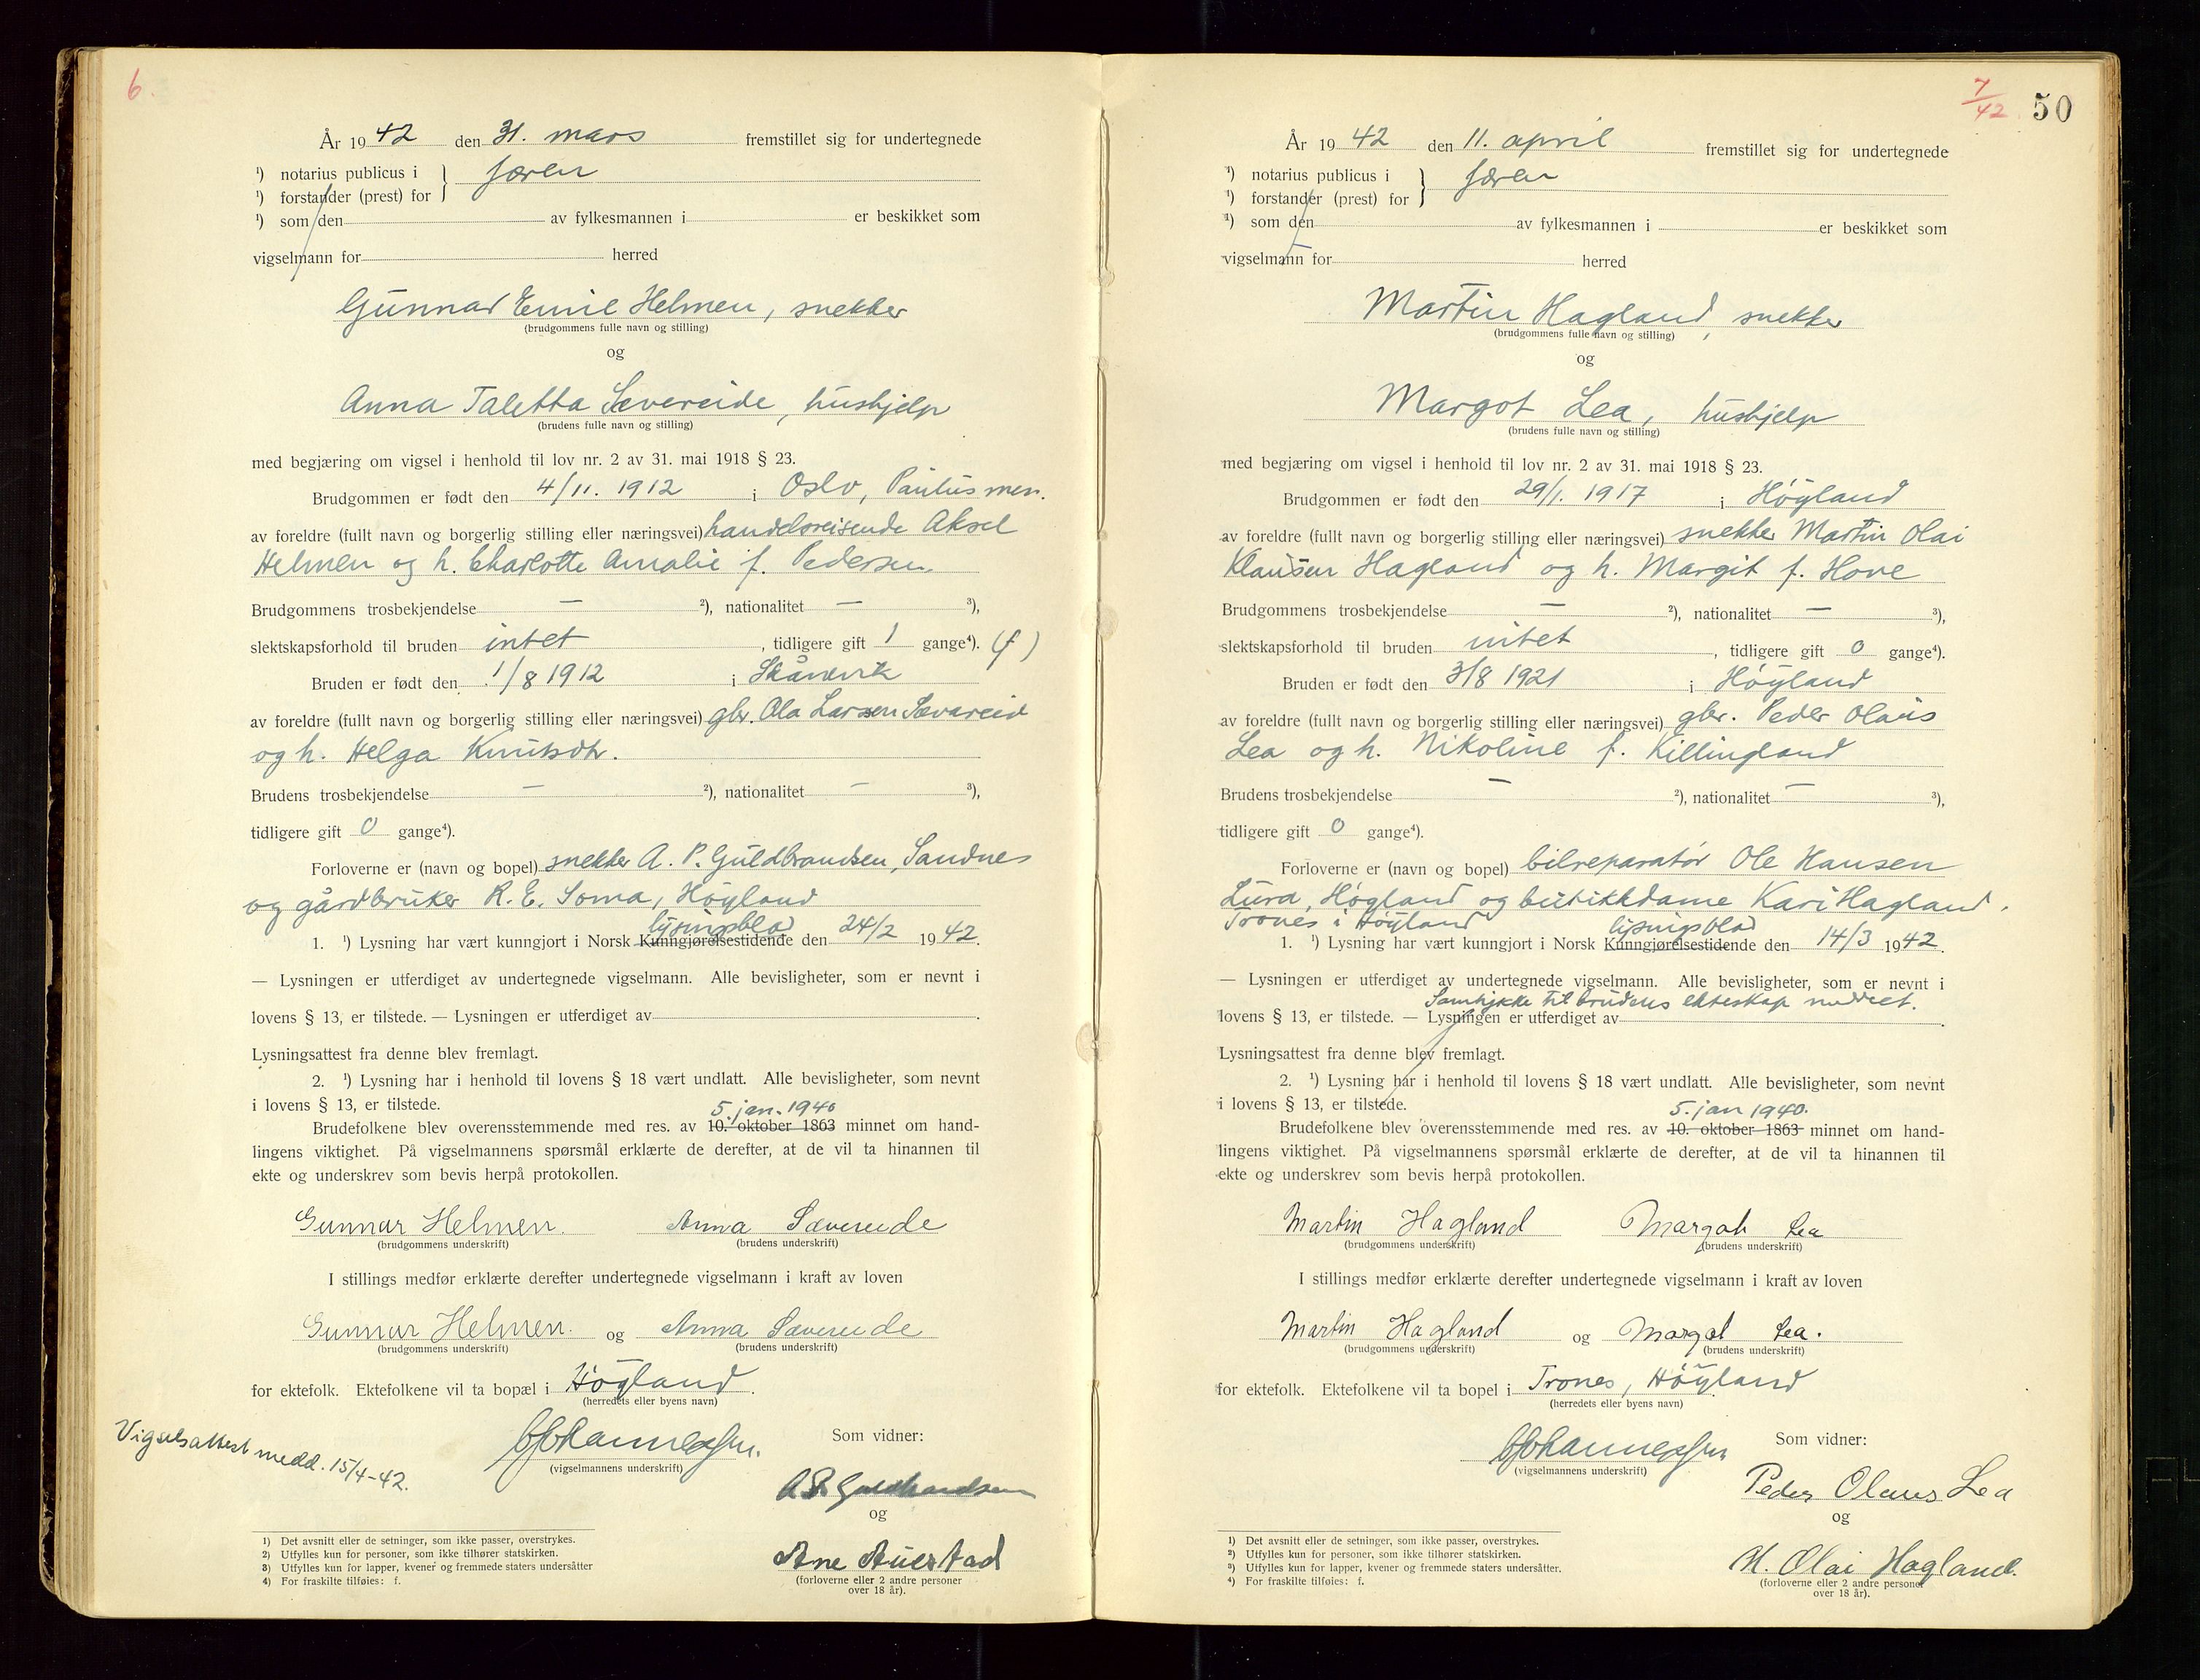 6.
År 1942 den 31. mars fremstillet sig for undertegnede
¹) notarius publicus i } Jæren
¹) forstander (prest) for
¹) som den av fylkesmannen i er beskikket som
vigselmann for herred
Gunnar Emil Helmen, snekker
(brudgommens fulle navn og stilling)
og
Anna Taletta Sævereide, hushjelp
(brudens fulle navn og stilling)
med begjæring om vigsel i henhold til lov nr. 2 av 31. mai 1918 § 23.
Brudgommen er født den 4/11. 1912 i Oslo, Paulus men.
av foreldre (fullt navn og borgerlig stilling eller næringsvei) handelsreisende Aksel
Helmen og h. Charlotte Amalie f. Pedersen
Brudgommens trosbekjendelse — ²), nationalitet — ³),
slektskapsforhold til bruden intet , tidligere gift 1 gange⁴). (f)
Bruden er født den 1/8 1912 i Skånevik
av foreldre (fullt navn og borgerlig stilling eller næringsvei) gbr. Ola Larsen Sævareid
og h. Helga Knutsdtr.
Brudens trosbekjendelse — ²), nationalitet — ³),
tidligere gift 0 gange⁴).
Forloverne er (navn og bopel) snekker A. P. Guldbrandsen, Sandnes
og gårdbruker R. E. Soma, Høyland
lysingsblad
1. ¹) Lysning har vært kunngjort i Norsk Kunngjørelsestidende den 24/2 1942.
— Lysningen er utferdiget av undertegnede vigselmann. Alle bevisligheter, som er nevnt i
lovens § 13, er tilstede. — Lysningen er utferdiget av .
Lysningsattest fra denne blev fremlagt.
2. ¹) Lysning har i henhold til lovens § 18 vært undlatt. Alle bevisligheter, som nevnt
i lovens § 13, er tilstede.
5. jan. 1940
Brudefolkene blev overensstemmende med res. av 10. oktober 1863 minnet om hand-
lingens viktighet. På vigselmannens spørsmål erklærte de derefter, at de vil ta hinannen til
ekte og underskrev som bevis herpå protokollen.
Gunnar Helmen. Anna Sævereide
(brudgommens underskrift) (brudens underskrift)
I stillings medfør erklærte derefter undertegnede vigselmann i kraft av loven
Gunnar Helmen. og Anna Sævereide
(brudgommens underskrift) (brudens underskrift)
for ektefolk. Ektefolkene vil ta bopæl i Høyland.
(herredets eller byens navn)
Vigselsattest medd. 15/4-42.
Johannessen.
(vigselmannens underskrift)
Som vidner:
A P. Guldbrandsen
og
Ane Auestad
(forloverne eller 2 andre personer
over 18 år).
1) Det avsnitt eller de setninger, som ikke passer, overstrykes.
2) Utfylles kun for personer, som ikke tilhører statskirken.
3) Utfylles kun for lapper, kvener og fremmede staters undersåtter
4) For fraskilte tilføies: f.
7/42 50
År 1942 den 11. april fremstillet sig for undertegnede
¹) notarius publicus i } Jæren
¹) forstander (prest) for
¹) som den av fylkesmannen i er beskikket som
vigselmann for herred
Martin Hagland, snekker
(brudgommens fulle navn og stilling)
og
Margot Lea, hushjelp
(brudens fulle navn og stilling)
med begjæring om vigsel i henhold til lov nr. 2 av 31. mai 1918 § 23.
Brudgommen er født den 29/1. 1917 i Høyland
av foreldre (fullt navn og borgerlig stilling eller næringsvei) snekker Martin Olai
Klausen Hagland og h. Margit f. Hove
Brudgommens trosbekjendelse — ²), nationalitet — ³),
slektskapsforhold til bruden intet , tidligere gift 0 gange⁴).
Bruden er født den 3/8 1921 i Høyland
av foreldre (fullt navn og borgerlig stilling eller næringsvei) gbr. Peder Olaus
Lea og h. Nikoline f. Killingland
Brudens trosbekjendelse — ²), nationalitet — ³),
tidligere gift 0 gange⁴).
Forloverne er (navn og bopel) bilreparatør Ole Hansen
Lura, Høgland og butikkdame Kari Hagland,
Trones i Høyland lysingsblad
1. ¹) Lysning har vært kunngjort i Norsk Kunngjørelsestidende den 14/3 1942.
— Lysningen er utferdiget av undertegnede vigselmann. Alle bevisligheter, som er nevnt i
Samtykke til brudens ekteskap meddelt.
lovens § 13, er tilstede. — Lysningen er utferdiget av .
Lysningsattest fra denne blev fremlagt.
2. ¹) Lysning har i henhold til lovens § 18 vært undlatt. Alle bevisligheter, som nevnt
i lovens § 13, er tilstede.
5. jan 1940.
Brudefolkene blev overensstemmende med res. av 10. oktober 1863 minnet om hand-
lingens viktighet. På vigselmannens spørsmål erklærte de derefter, at de vil ta hinannen til
ekte og underskrev som bevis herpå protokollen.
Martin Hagland Margot Lea
(brudgommens underskrift) (brudens underskrift)
I stillings medfør erklærte derefter undertegnede vigselmann i kraft av loven
Martin Hagland og Margot Lea.
(brudgommens underskrift) (brudens underskrift)
for ektefolk. Ektefolkene vil ta bopel i Trones, Høyland
(herredets eller byens navn)
Johannessen
(vigselmannens underskrift)
Som vidner:
Peder Olaus Lea
og
M. Olai Hagland.
(forloverne eller 2 andre personer
over 18 år).
1) Det avsnitt eller de setninger, som ikke passer, overstrykes.
2) Utfylles kun for personer, som ikke tilhører statskirken.
3) Utfylles kun for lapper, kvener og fremmede staters undersåtter.
4) For fraskilte tilføies: f.